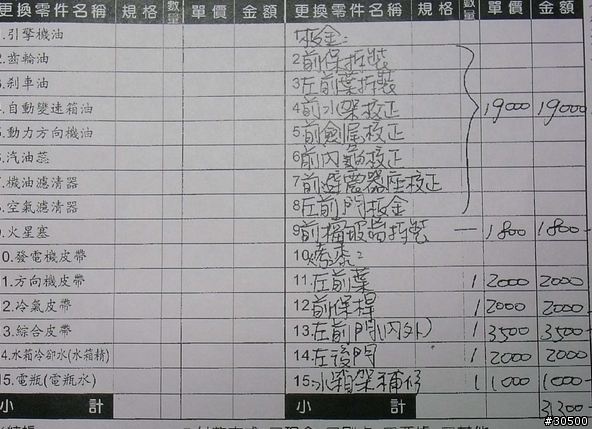 更換零件名稱 規格 數量 單價 金額 更換零件名稱 規格 數量 單價 金額
1.引擎機油 板金:
2.齒輪油 2前保拆裝
3.刹車油 3左前葉拆裝
4.自動變速箱油 4前水架校正 19000 19000
5.動力方向機油 5前劍尾校正
6.汽油蕊 6前內龜校正
7.機油濾清器 7前避震器座校正
8.空氣濾清器 8左前門板金
9.火星塞 9前擋玻璃拆裝 — 1800 1800-
10.發電機皮帶 10.烤漆:
11.方向機皮帶 11.左前葉 1 2000 2000-
12.冷氣皮帶 12前保桿 1 2000 2000-
13.綜合皮帶 13.左前門(內外) 1 3500 3500-
14.水箱冷卻水(水箱精) 14.左後門 1 2000 2000
15.電瓶(電瓶水) 15.水箱架補修 1 1000 1000-
小計 小計
#30500